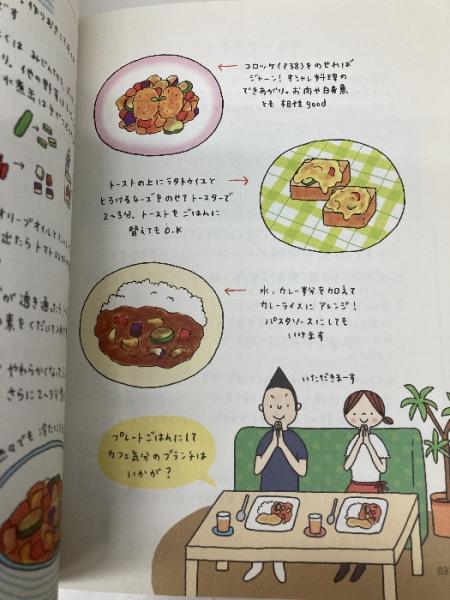 コロッケ(P38)をのせれば
ジャーン！オシャレ料理の
できあがり。お肉や白身魚
とも相性good
トーストの上にラタトゥイユと
とろけるチーズをのせてトースターで
2〜3分。トーストをごはんに
替えてもO.K
水、カレー粉を加えて
カレーライスにアレンジ！
パスタソースにしても
いけます
いただきまーす
プレートごはんにして
カフェ気分のブランチは
いかが？
です
オリーブオイルと
出たらトマト
が透き通ったら
やわらかくなった
さらに2〜3分
でも冷た
03